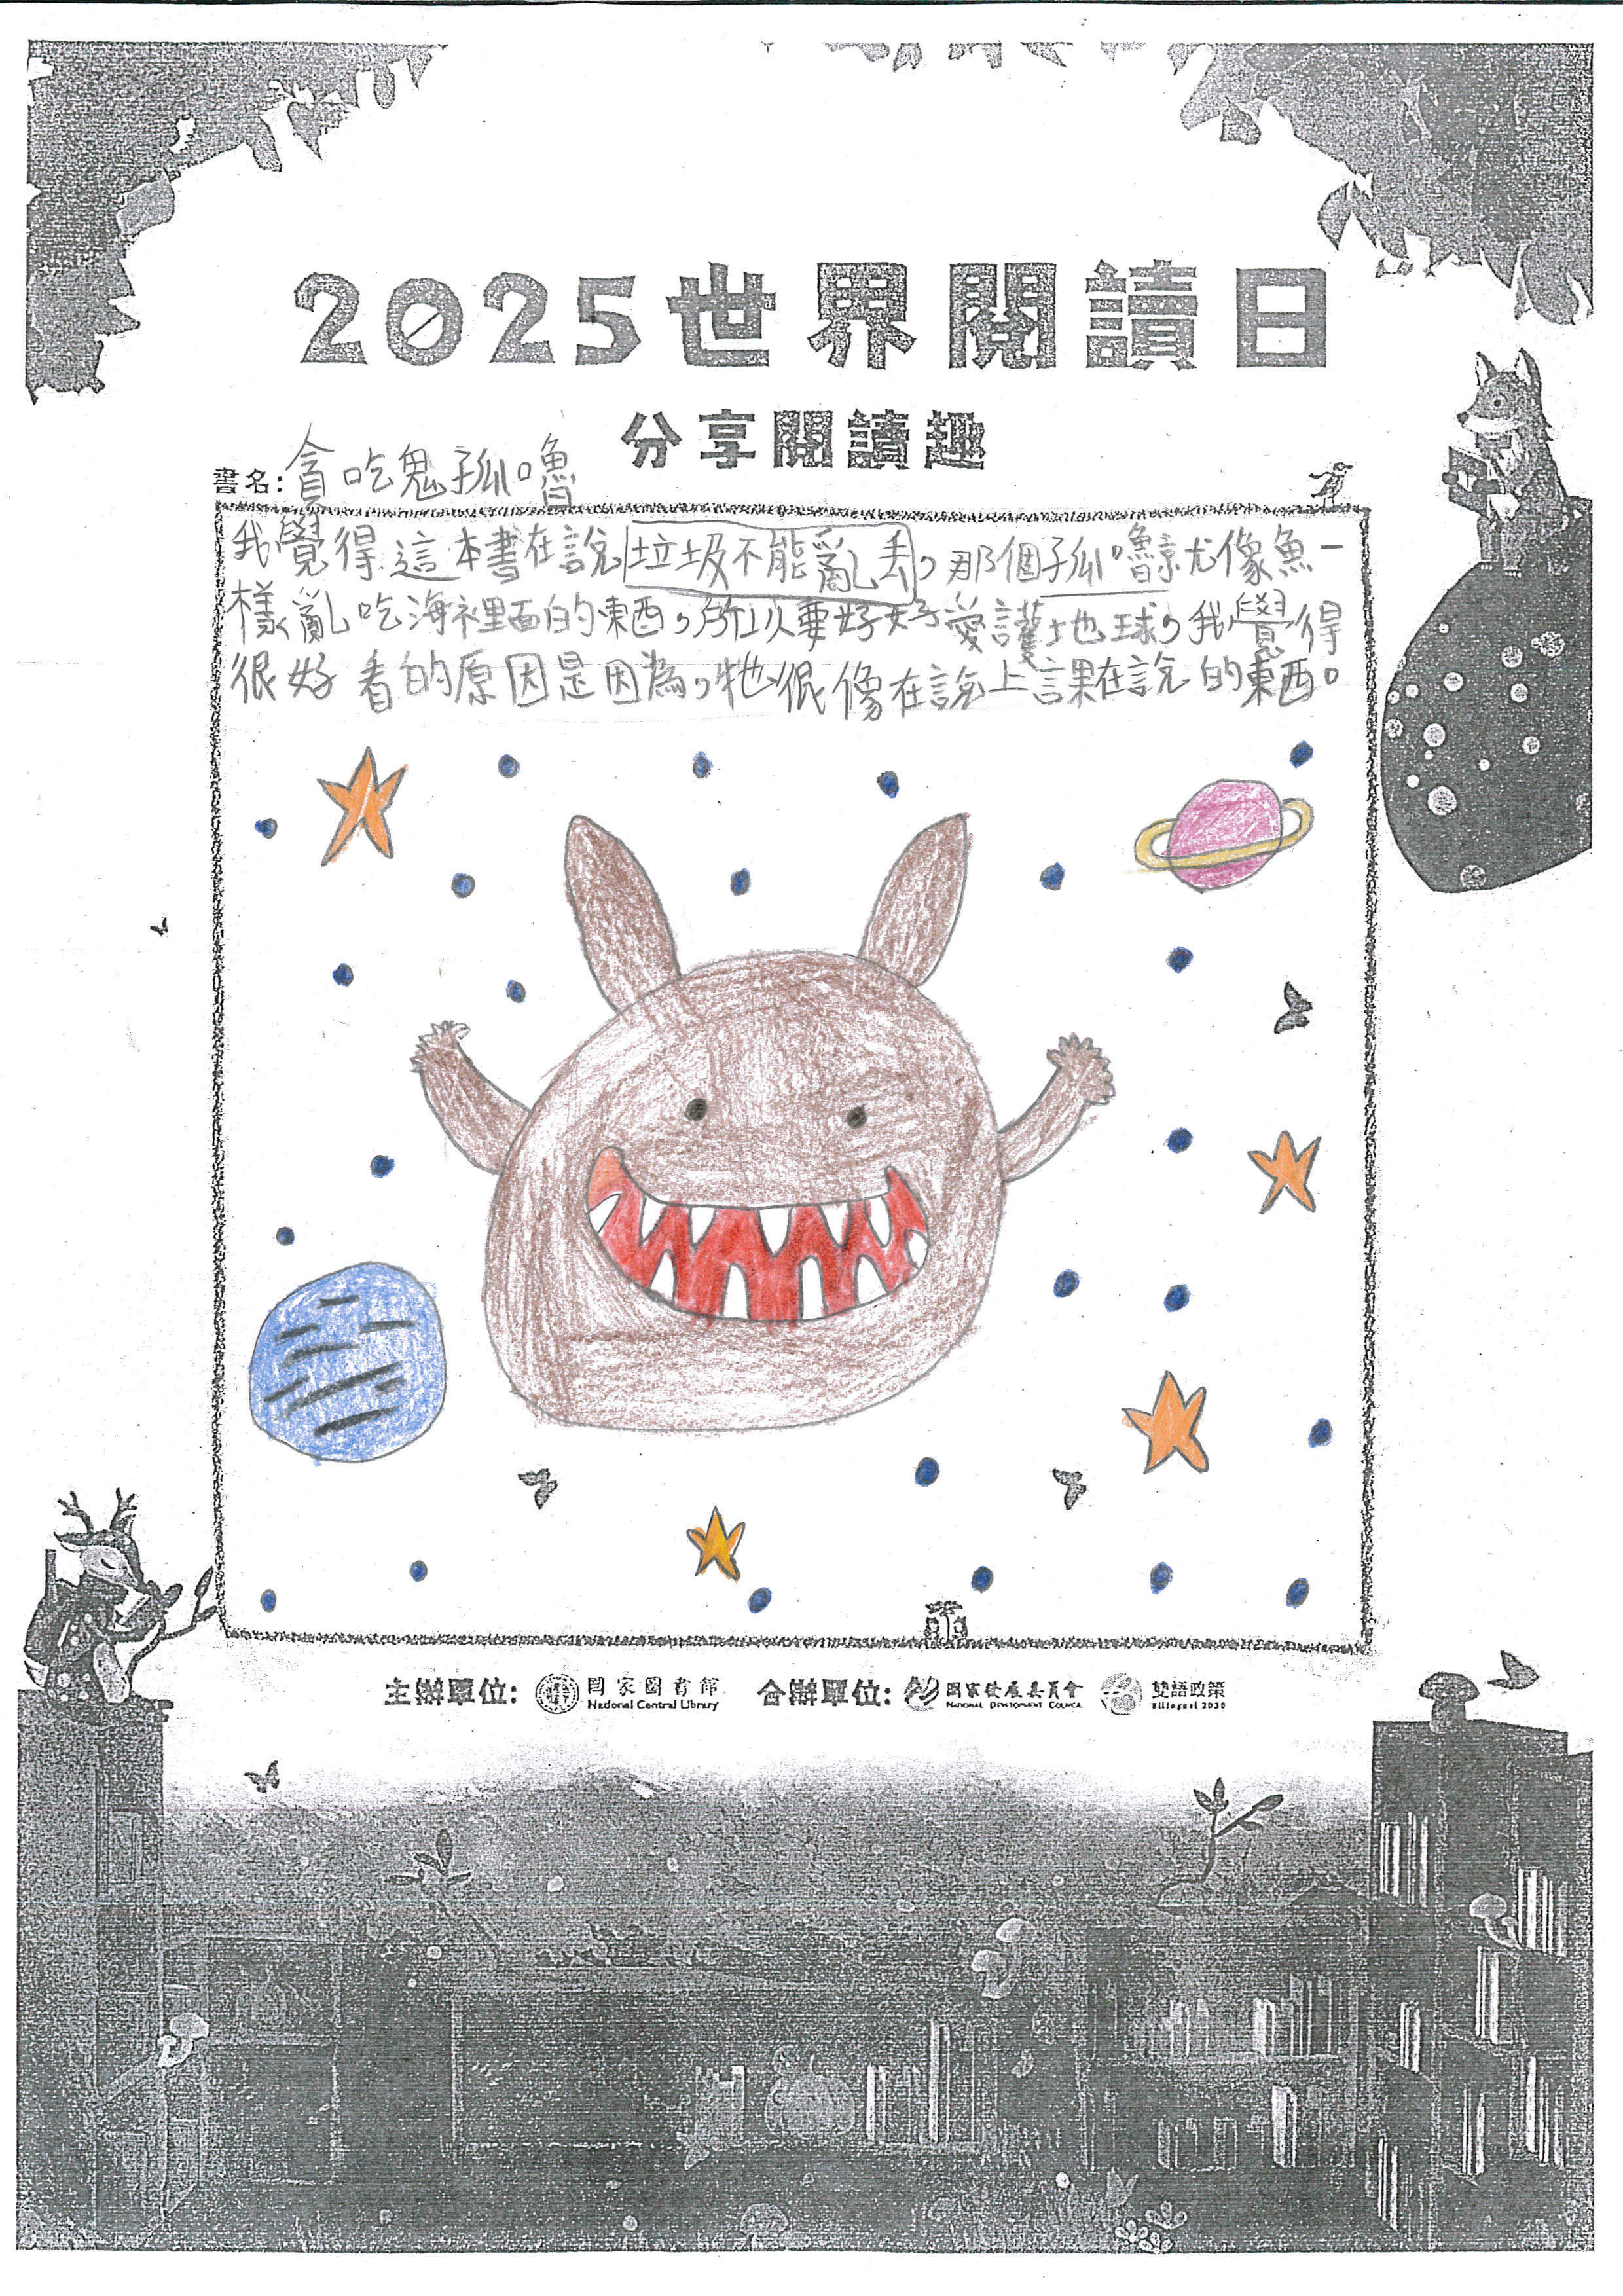 2025世界閱讀日
分享閱讀趣
書名:貪吃鬼孤嚕
我覺得這本書在說,垃圾不能亂丟,那個孤嚕就像魚一
樣亂吃海裡面的東西,所以要好好愛護地球,我覺得
很好看的原因是因為,牠很像在說上課在說的東西。
主辦單位: 國家圖書館 National Central Library 合辦單位: 國家發展委員會 NATIONAL DEVELOPMENT COUNCIL 雙語政策 Bilingual 2030